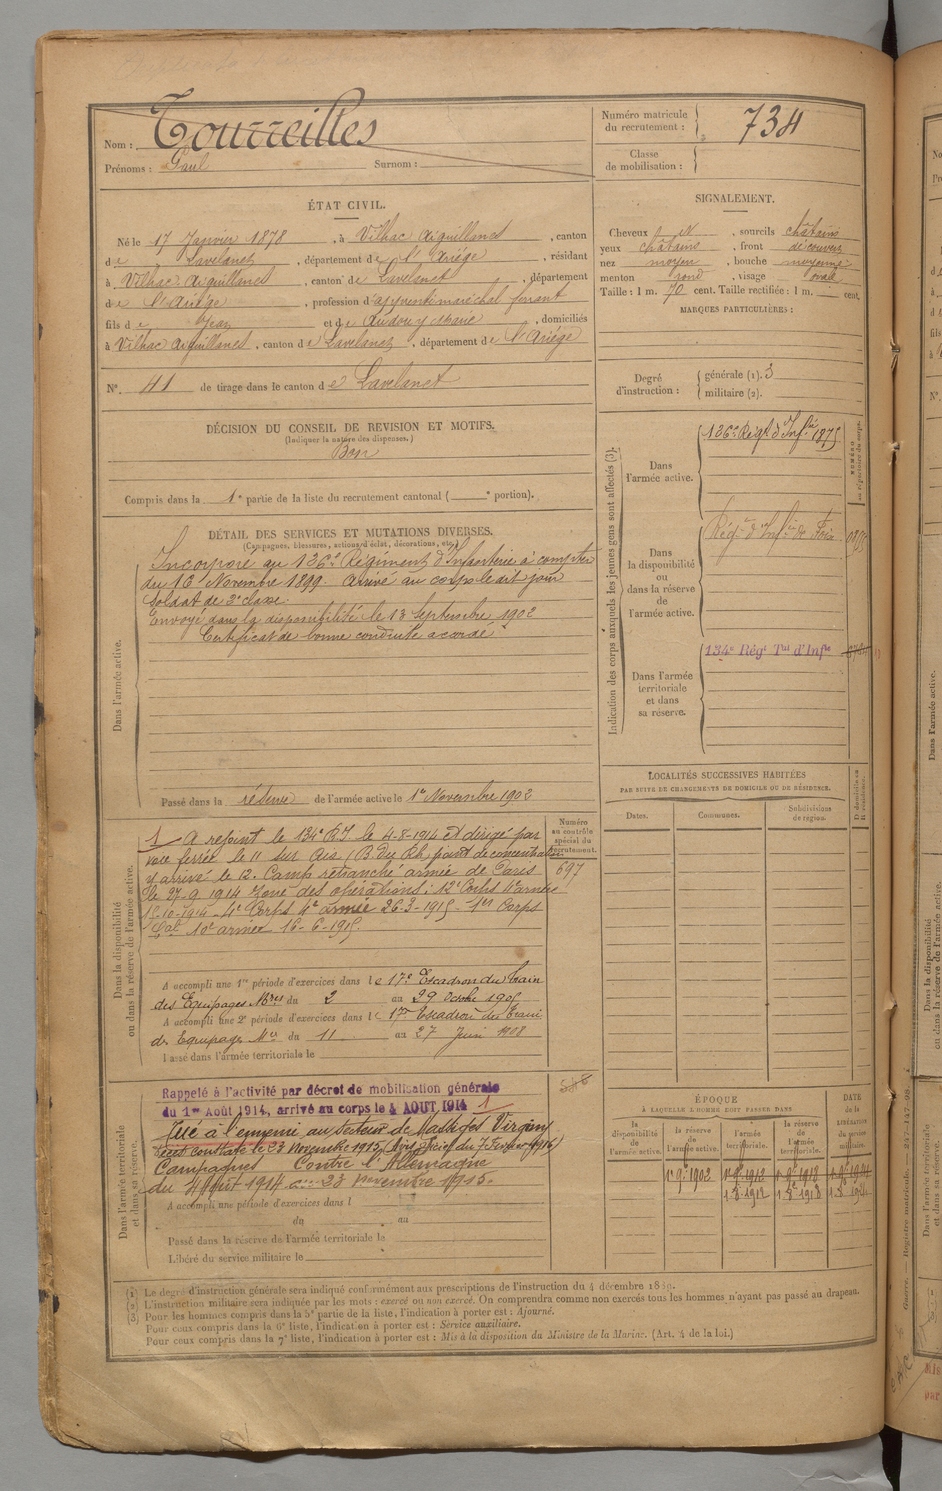 Nom : Tourreilles
Prénoms : Paul Surnom :
Numéro matricule du recrutement : 734
Classe de mobilisation :
ÉTAT CIVIL.
Né le 17 Janvier 1878, à Vilhac Aiguillanes, canton
de Lavelanet, département de l'Ariège, résidant
à Vilhac Aiguillanes, canton de Lavelanet, département
de l'Ariège, profession d'apprenti maréchal ferrant
fils de Jean et de Audouy Marie, domiciliés
à Vilhac Aiguillanes, canton de Lavelanet, département de l'Ariège
N° 41 de tirage dans le canton de Lavelanet
SIGNALEMENT.
Cheveux et, sourcils châtains
yeux châtains, front découvert
nez moyen, bouche moyenne
menton rond, visage oval
Taille : 1 m. 70 cent. Taille rectifiée : 1 m. cent.
MARQUES PARTICULIÈRES :
Degré d'instruction : générale (1). 3
militaire (2).
DÉCISION DU CONSEIL DE REVISION ET MOTIFS.
(Indiquer la nature des dispenses.)
Bon
Compris dans la 1e partie de la liste du recrutement cantonal ( e portion).
DÉTAIL DES SERVICES ET MUTATIONS DIVERSES.
(Campagnes, blessures, actions d'éclat, décorations, etc.)
Dans l'armée active.
Incorporé au 136e Régiment d'Infanterie à compter
du 16 Novembre 1899. Arrivé au corps le dit jour
Soldat de 2e classe.
Envoyé dans la disponibilité le 13 Septembre 1902
Certificat de bonne conduite accordé
Passé dans la réserve de l'armée active le 1er Novembre 1902
Dans la disponibilité ou dans la réserve de l'armée active.
Numéro au contrôle spécial du recrutement.
697
1 A rejoint le 134e R.I. le 4-8-1914 et dirigé par
voie ferrée le 11 sur Ris (B. du Rh.) point de concentration
y arrivé le 12. Camp retranché armée de Paris
le 27-9 1914 Zone des opérations : 12e Corps d'armée
15-10-1914 - 4e Corps 4e armée 26-3-1915 - 1er Corps
Cal 10e armée 16-6-1915.
A accompli une 1re période d'exercices dans le 17e Escadron du train
des Equipages Mres du 2 au 29 Octobre 1905
A accompli une 2e période d'exercices dans le 17e Escadron du train
des Equipages Mres du 11 au 27 Juin 1908
Passé dans l'armée territoriale le
Dans l'armée territoriale et dans sa réserve.
Rappelé à l'activité par décret de mobilisation générale
du 1er Août 1914, arrivé au corps le 4 AOUT 1914 1
Tué à l'ennemi au secteur de Massiges Virginy
décès constaté le 23 Novembre 1915 (Avis officiel du 7 Février 1916)
Campagnes Contre l'Allemagne
du 4 Août 1914 au 23 novembre 1915.
A accompli une période d'exercices dans l
du au
Passé dans la réserve de l'armée territoriale le
Libéré du service militaire le
Indication des corps auxquels les jeunes gens sont affectés (3).
NUMÉRO au répertoire du corps.
Dans l'armée active.
136e Régt d'Infie 1875
Dans la disponibilité ou dans la réserve de l'armée active.
Régt d'Infie de Foix
Dans l'armée territoriale et dans sa réserve.
134e Régt Tal d'Infie
LOCALITÉS SUCCESSIVES HABITÉES
PAR SUITE DE CHANGEMENTS DE DOMICILE OU DE RÉSIDENCE.
Dates. Communes. Subdivisions de région. D domicile ou R résidence.
ÉPOQUE
À LAQUELLE L'HOMME DOIT PASSER DANS
DATE de la LIBÉRATION du service militaire.
la disponibilité de l'armée active. la réserve de l'armée active. l'armée territoriale. la réserve de l'armée territoriale.
(1) Le degré d'instruction générale sera indiqué conformément aux prescriptions de l'instruction du 4 décembre 1889.
(2) L'instruction militaire sera indiquée par les mots : exercé ou non exercé. On comprendra comme non exercés tous les hommes n'ayant pas passé au drapeau.
(3) Pour les hommes compris dans la 5e partie de la liste, l'indication à porter est : Ajourné.
Pour ceux compris dans la 6e liste, l'indication à porter est : Service auxiliaire.
Pour ceux compris dans la 7e liste, l'indication à porter est : Mis à la disposition du Ministre de la Marine. (Art. 4 de la loi.)